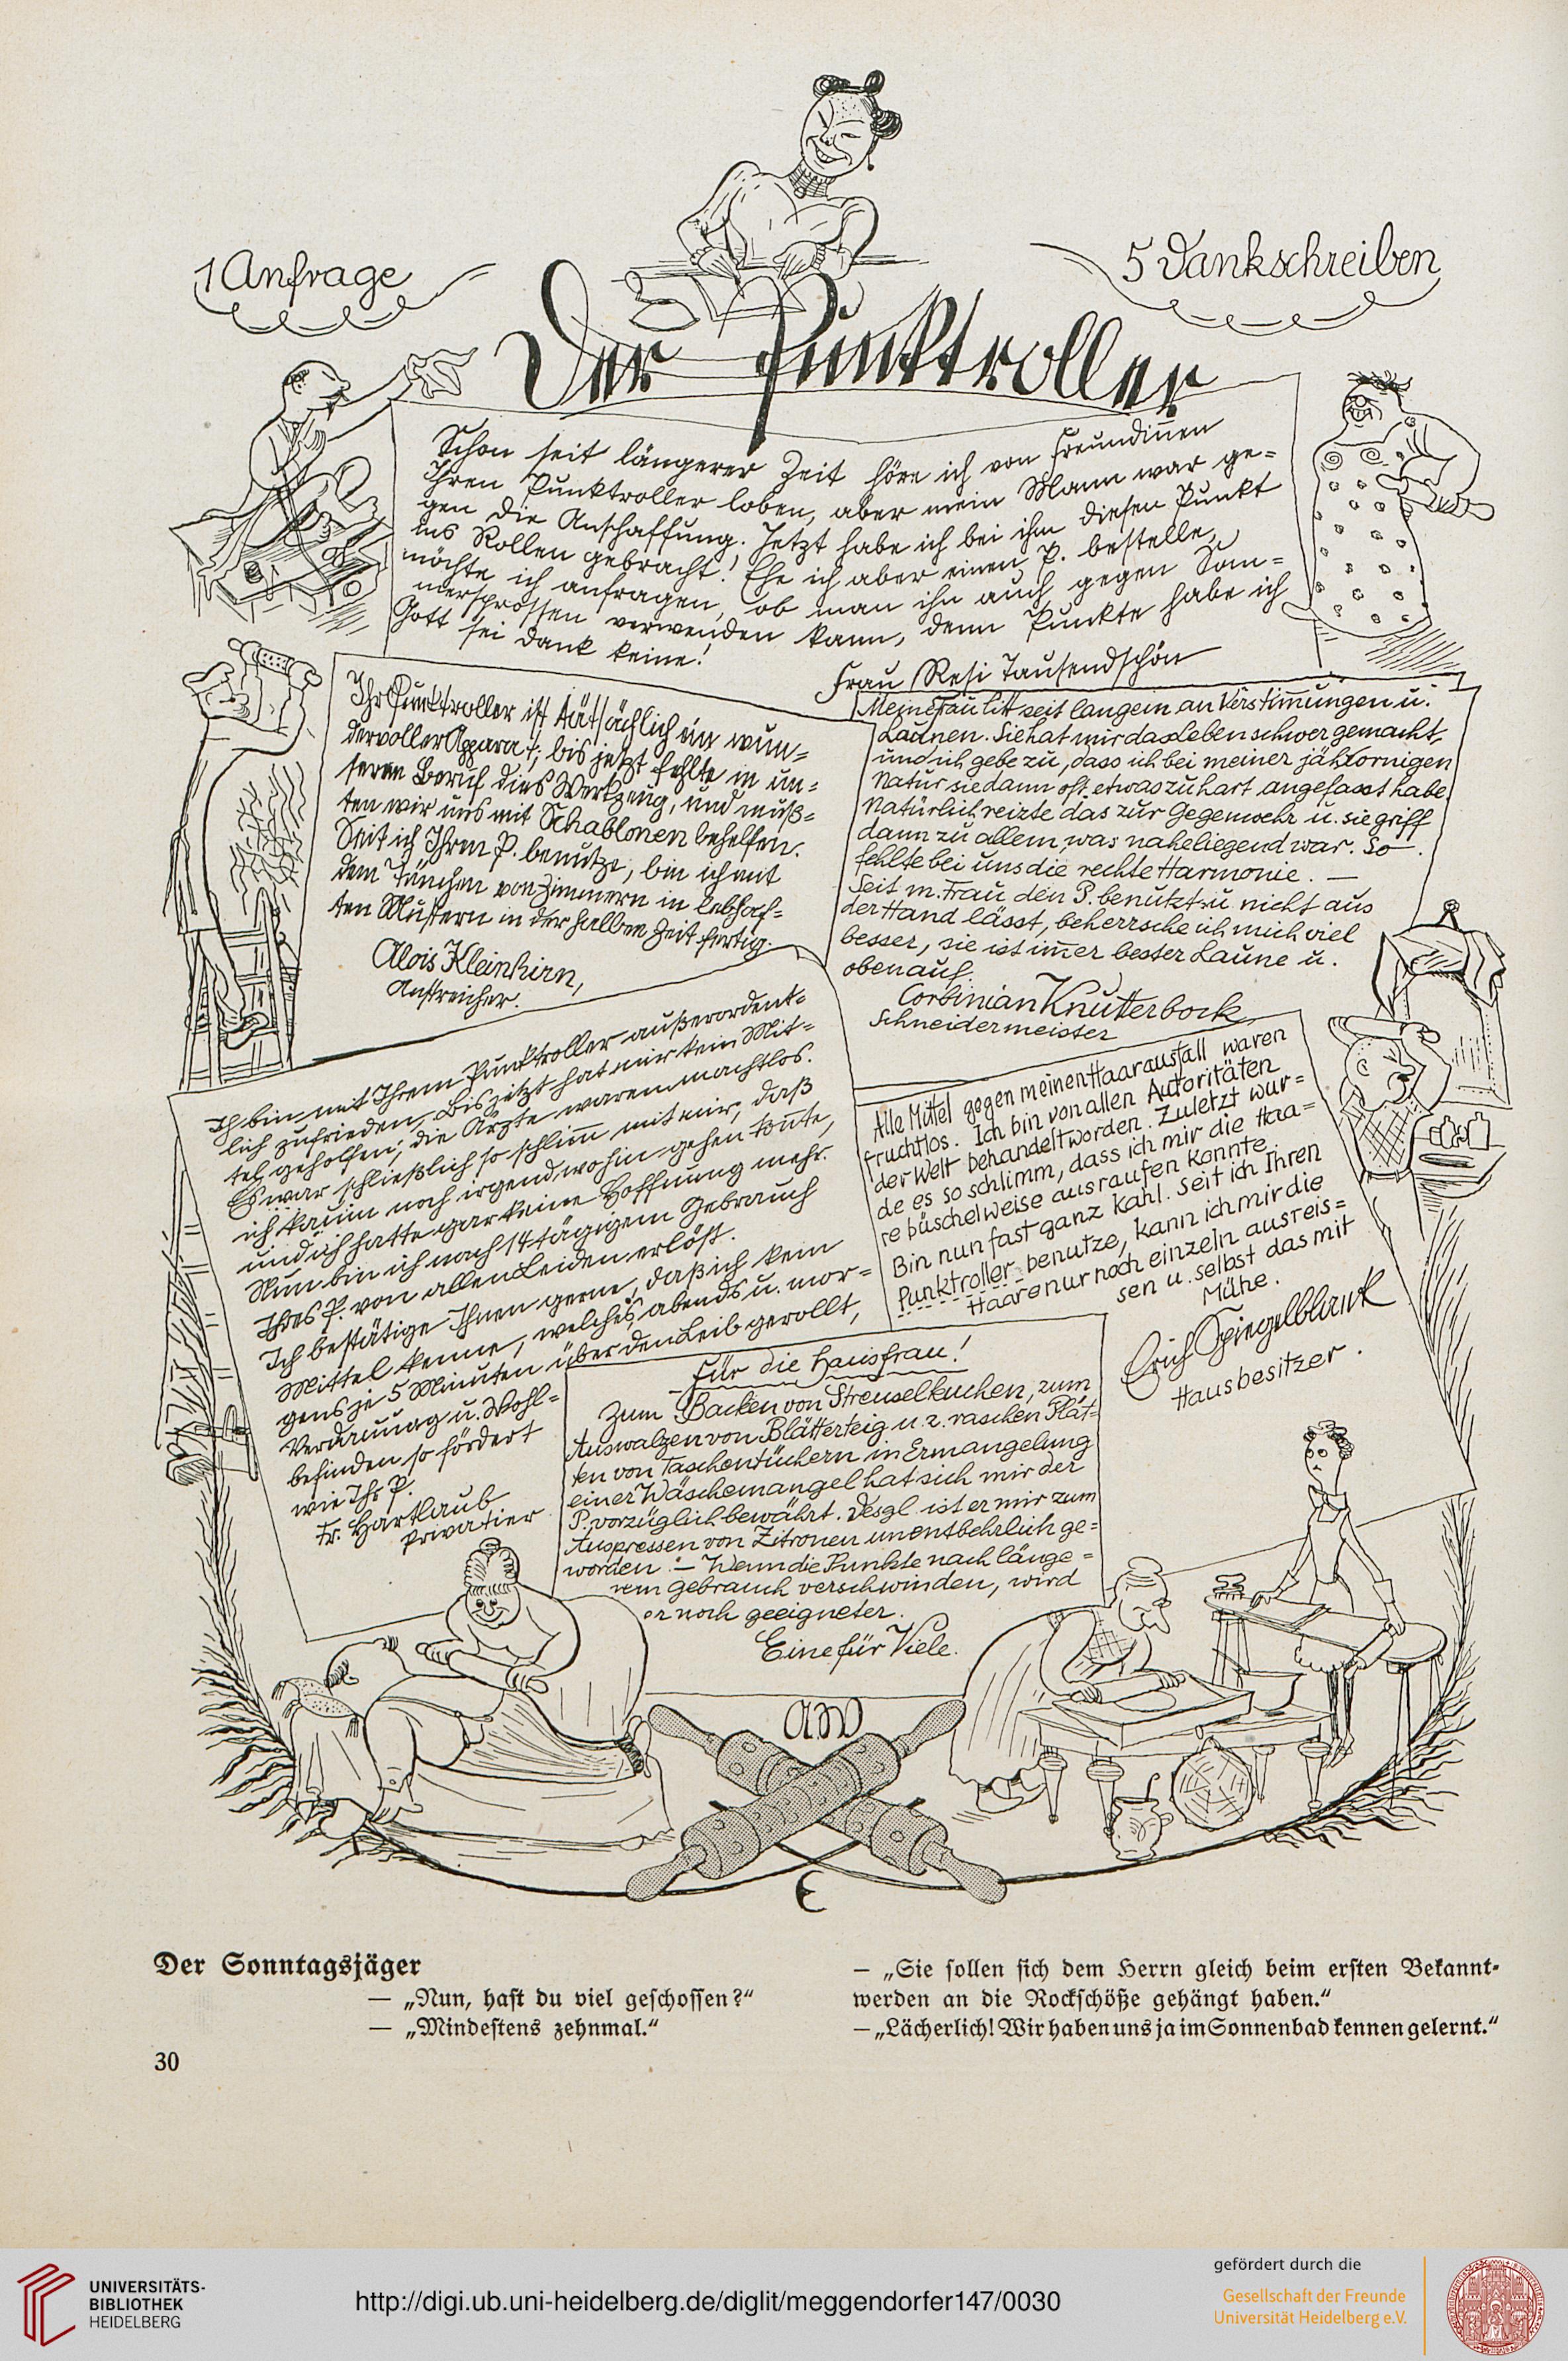 1 Anfrage
5 Dankschreiben
Der Punktroller
Schon seit längerer Zeit höre ich von Freundiñen
Ihren Punktroller loben, aber mein Mann war ge=
gen die Anschaffung. Jetzt habe ich bei ihm diesen Punkt
ins Rollen gebracht! Ehe ich aber einen P. bestelle,
möchte ich anfragen, ob man ihn auch gegen Som=
mersprossen verwenden kann, denn Punkte habe ich
Gott sei dank keine!
Frau Resi Tausendschön
Ihr Punktroller ist tatsächlich ein wun=
dervoller Apparat; bis jetzt fehlte in un=
serem Beruf dies Werkzeug, und muß=
ten wir uns mit Schablonen behelfen.
Seit ich Ihren P. benutze, bin ich mit
dem Tünchen von Zimmern in lebhaf=
ten Mustern in der halben Zeit fertig.
Alois Kleinhirn,
Anstreicher.
Meine Frau litt seit langem an Verstim̄ungen u.
Launen. Sie hat mir das Leben schwer gemacht,
und ich gebe zu, dass ich bei meiner jähzornigen
Natur sie dann oft etwas zu hart angefasst habe.
Natürlich reizte das zur Gegenwehr u. sie griff
dann zu allem, was naheliegend war. So
fehlte bei uns die rechte Harmonie. —
Seit m. Frau den P. benutzt u. nicht aus
der Hand lässt, beherrsche ich mich viel
besser, sie ist im̄er bester Laune u.
obenauf.
Corbinian Knutterbock
Schneidermeister
Ich bin mit Ihrem Punktroller außerordent=
lich zufrieden. Bis jetzt hat mir kein Mit=
tel geholfen; die Ärzte waren machtlos.
Es war schließlich so schlim̄ mit mir, daß
ich kaum noch irgendwohin gehen kon̄te,
und ich hatte gar keine Hoffnung mehr.
Nun bin ich nach 14 tägigem Gebrauch
Ihres P. von allen Leiden erlöst.
Ich bestätige Ihnen gerne, daß ich kein
Mittel kenne, welches, abends u. mor=
gens je 5 Minuten über den Leib gerollt,
Verdauung u. Wohl=
befinden so fördert
wie Ihr P.
Fr. Hartlaub
Privatier
Alle Mittel gegen meinen Haarausfall waren
fruchtlos. Ich bin von allen Autoritäten
der Welt behandelt worden. Zuletzt wur=
de es so schlimm, dass ich mir die Haa=
re büschelweise ausraufen konnte.
Bin nun fast ganz kahl. Seit ich Ihren
Punktroller benutze, kann ich mir die
Haare nur noch einzeln ausreis=
sen u. selbst das mit
Mühe.
Erich Spiegelblank
Hausbesitzer.
Für die Hausfrau!
Zum Backen von Streuselkuchen, zum
Auswalzen von Blätterteig u. z. raschen Plät=
ten von Taschentüchern in Ermangelung
einer Wäschemangel hat sich mir der
P. vorzüglich bewährt. Desgl. ist er mir zum
Auspressen von Zitronen unentbehrlich ge=
worden. — Wenn die Punkte nach länge=
rem Gebrauch verschwinden, wird
er noch geeigneter.
Eine für Viele.
AW
Der Sonntagsjäger
— „Nun, hast du viel geschossen?“
— „Mindestens zehnmal.“
— „Sie sollen sich dem Herrn gleich beim ersten Bekannt-
werden an die Rockschöße gehängt haben.“
— „Lächerlich! Wir haben uns ja im Sonnenbad kennen gelernt.“
30
UNIVERSITÄTS-
BIBLIOTHEK
HEIDELBERG
http://digi.ub.uni-heidelberg.de/diglit/meggendorfer147/0030
gefördert durch die
Gesellschaft der Freunde
Universität Heidelberg e.V.